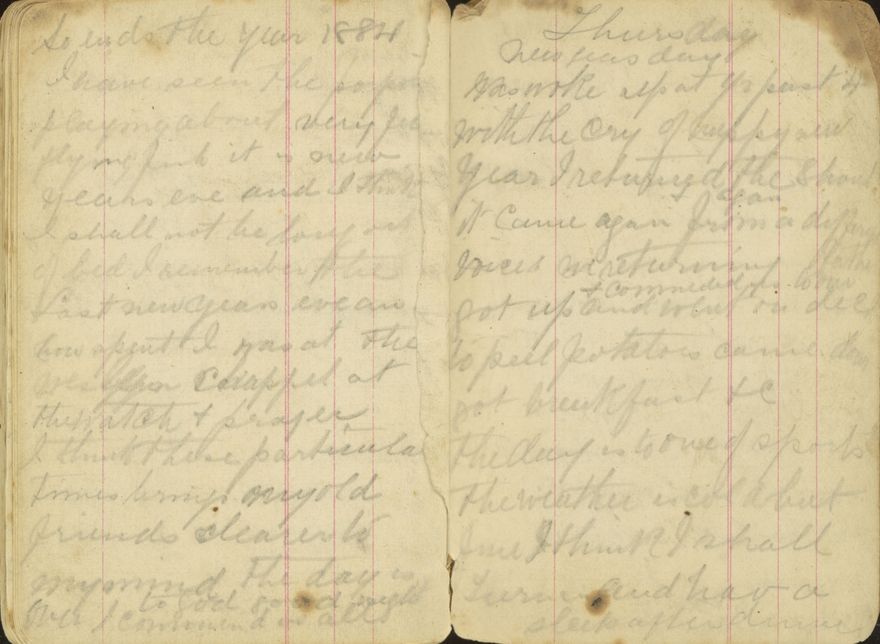 So ends the year 1884
I have seen the
playing about very
flying fish it is new
years eve and I think
I shall not be long out
of bed I remember the
Last new years eve an
how spent I was at the
Chappel at
the watch & prayer
I think these particular
times brings my old
friends clearer to
my mind The day is
over I commend us all
to God good night
Thursday
new years day
Was woke up at ½ past 4
with the cry of happy new
year I returned the shout
it came again from a
again
voices
& commended us to our
got up and went on deck
to peel potatoes came down
got breakfast & C
The day is to one of sports
The weather is cold but
fine I think I shall
turn in and have a
sleep after dinner